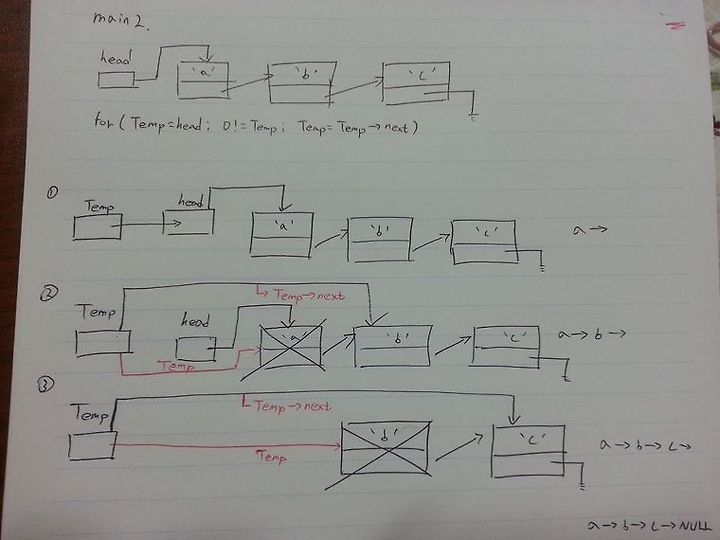 main2.
head
'a' 'b' 'c'
for ( Temp=head; 0!=Temp; Temp=Temp→next)
①
Temp head
'a' 'b' 'c' a→
②
Temp → Temp→next
head 'a' 'b' 'c' a→b→
Temp
③
Temp → Temp→next
'b' 'c' a→b→c→
Temp
a→b→c→NULL